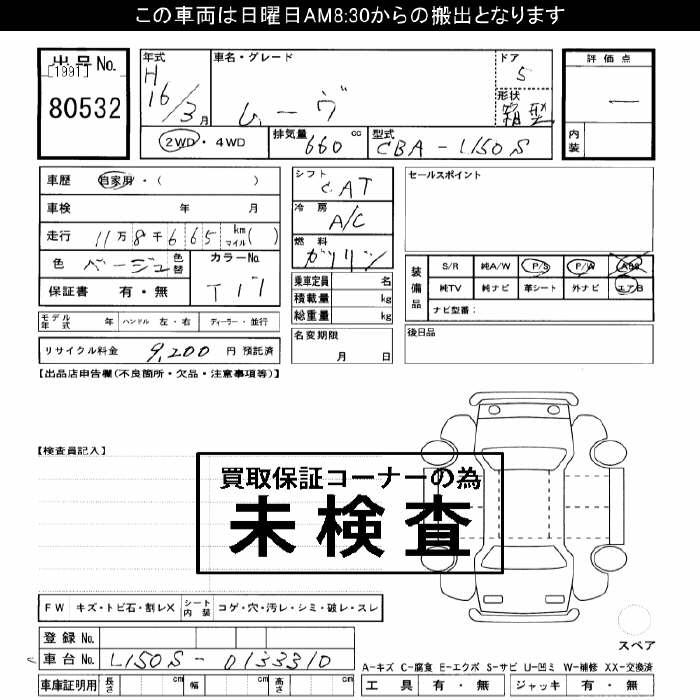 この車両は日曜日AM8:30からの搬出となります
出品No.
[1991]
80532
年式
H
16/3月
車名・グレード
ムーヴ
ドア
5
形状
箱型
評価点
―
内装
2WD・4WD
排気量
660 cc
型式
CBA-L150S
車歴 自家用・( )
車検 年 月
走行 11万8千665 km マイル( )
色 ベージュ 色替
カラーNo.
T17
保証書 有・無
モデル年式 年 ハンドル 左・右 ディーラー・並行
リサイクル料金 9,200 円 預託済
シフト
CAT
冷房
A/C
燃料
ガソリン
乗車定員 名
積載量 kg
総重量 kg
名変期限
月 日
セールスポイント
装備品
S/R 純A/W P/S P/W ABS
純TV 純ナビ 革シート 外ナビ エアB
ナビ型番:
後日品
【出品店申告欄(不良箇所・欠品・注意事項等)】
【検査員記入】
買取保証コーナーの為
未検査
FW キズ・トビ石・割レX シート内装 コゲ・穴・汚レ・シミ・破レ・スレ
登録No.
車台No. L150S-0133310
車庫証明用 長さ cm 幅 cm 高さ cm
スペア
A-キズ C-腐食 E-エクボ S-サビ U-凹ミ W-補修 XX-交換済
工具 有・無 ジャッキ 有・無